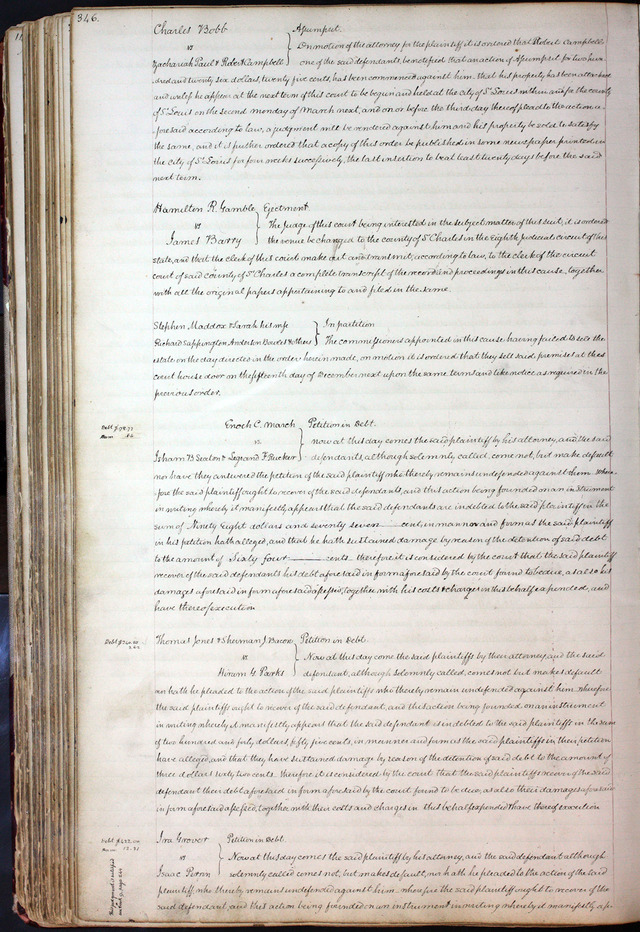 346.
Charles Bobb } Assumpsit.
vs On motion of the attorney for the plaintiff it is ordered that Robert Campbell
Zachariah Paul & Robert Campbell one of the said defendants, be notified that an action of Assumpsit for two hun-
dred and twenty six dollars, twenty five cents, has been commenced against him. that his property has been attached
and unless he appear at the next term of this court to be begun and held at the city of St Louis within and for the county
of St Louis on the second monday of March next, and on or before the third day thereof plead to the action a-
foresaid according to law, a judgment will be rendered against him and his property be sold to satisfy
the same, and it is further ordered that a copy of this order be published in some newspaper printed in
the city of St Louis for four weeks successively, the last insertion to be at least twenty days before the said
next term.
Hamilton R. Gamble } Ejectment
vs The Judge of this court being interested in the subject matter of this suit, it is ordered
James Barry the venue be changed to the county of St Charles in the Eighth Judicial circuit of this
state, and that the clerk of this court make out and transmit, according to law, to the clerk of the circuit
court of said county of St Charles a complete transcript of the record and proceedings in this cause, together
with all the original papers appertaining to and filed in the same.
Stephen Maddox & Sarah his wife } In partition
Richard Sappington Anderson & others The commissioners appointed in this cause having failed to sell the
estate on the day directed in the order herein made, on motion it is ordered that they sell said premises at the
court house door on the fifteenth day of December next upon the same terms and like notice as required in the
previous order.
Debt $98.77 Enoch C. March } Petition in Debt.
Dam .64 vs. now at this day comes the said plaintiff by his attorney, and the said
Isham B Seaton & Legrand F Rucker defendants, although solemnly called, come not, but make default
nor have they answered the petition of the said plaintiff who thereby remains undefended against them where-
fore the said plaintiff ought to recover of the said defendants, and this action being founded on an instrument
in writing whereby it manifestly appears that the said defendants are indebted to the said plaintiff in the
sum of Ninety Eight dollars and seventy seven cents in manner and form as the said plaintiff
in his petition hath alleged, and that he hath sustained damage by reason of the detention of said debt
to the amount of Sixty four cents. therefore it is considered by the court that the said plaintiff
recover of the said defendants his debt aforesaid in form aforesaid by the court found to be due, as also his
damages aforesaid in form aforesaid assessed, together with his costs & charges in this behalf expended, and
have thereof execution
Debt $240.55 Thomas Jones & Sherman J. Bacon } Petition in Debt.
3.62 vs Now at this day come the said plaintiffs by their attorney, and the said
Hiram G Parks defendant, although solemnly called, comes not but makes default
nor hath he pleaded to the action of the said plaintiffs who thereby remain undefended against him. wherefore
the said plaintiffs ought to recover of the said defendant, and this action being founded on an instrument
in writing whereby it manifestly appears that the said defendant is indebted to the said plaintiffs in the sum
of two hundred and forty dollars fifty five cents, in manner and form as the said plaintiffs in their petition
have alleged, and that they have sustained damage by reason of the detention of said debt to the amount of
three dollars sixty two cents. therefore it is considered by the court that the said plaintiffs recover of the said
defendant their debt aforesaid in form aforesaid by the court found to be due, as also their damages aforesaid
in form aforesaid assessed, together with their costs and charges in this behalf expended & have thereof execution
Ira Grover } Petition in Debt.
vs Now at this day comes the said plaintiff by his attorney, and the said defendant although
Isaac solemnly called comes not, but makes default, nor hath he pleaded to the action of the said
plaintiff who thereby remains undefended against him. wherefore the said plaintiff ought to recover of the
said defendant, and this action being founded on an instrument in writing whereby it manifestly ap-